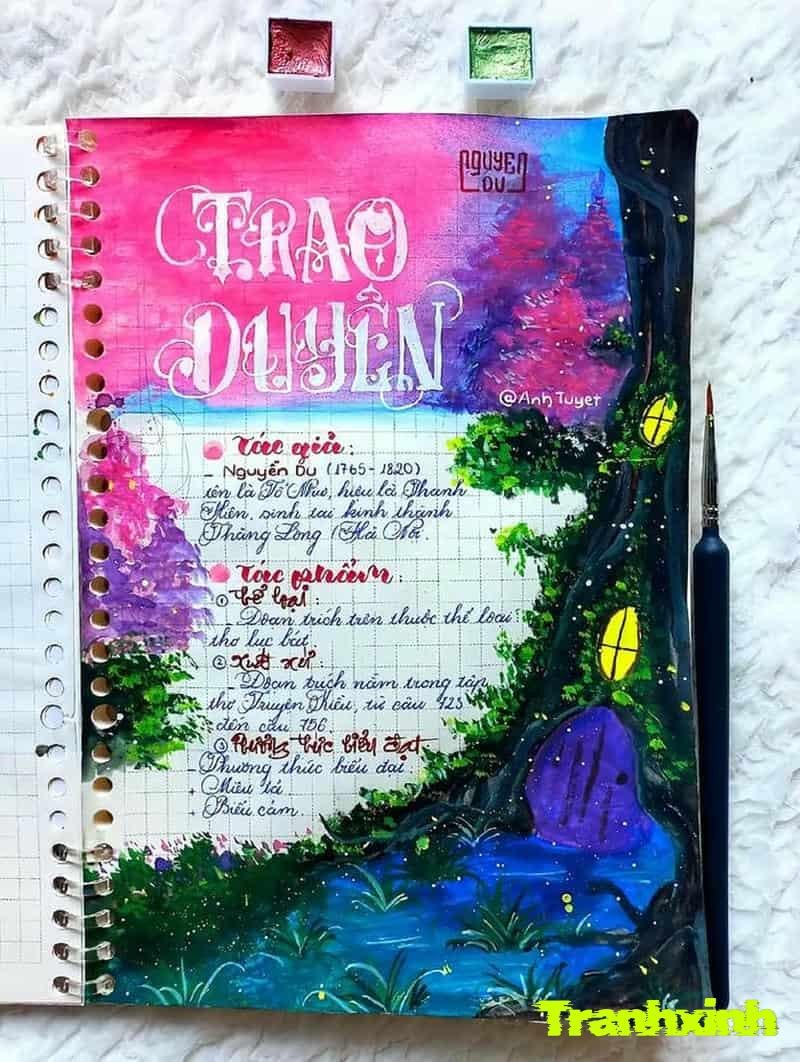 NGUYEN
DU
TRAO
DUYÊN
@Anh Tuyet
Tác giả:
- Nguyễn Du (1765-1820)
tên là Tố Như, hiệu là Thanh
Hiên, sinh tại kinh thành
Thăng Long (Hà Nội.
Tác phẩm:
① Thể loại:
- Đoạn trích trên thuộc thể loại:
thơ lục bát
② Xuất xứ:
- Đoạn trích nằm trong tập
thơ Truyện Kiều, từ câu 723
đến câu 756
③ Phương thức biểu đạt
- Phương thức biểu đạt
+ Miêu tả
+ Biểu cảm.
Tranhxinh